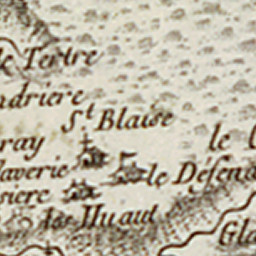 le Tertre
ndriere
St Blaise
ray
le
laverie
le Défen
siere
la Huaut
Gla